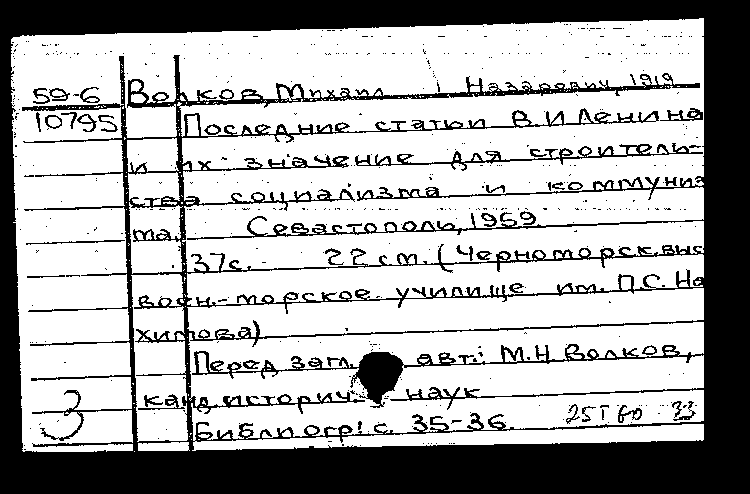 59-6 Волков, Михаил Назарович, 1919
10795 Последние статьи В.И Ленина
и их значение для строитель-
ства социализма и коммуниз
ма. Севастополь, 1959.
37с. 22 см. (Черноморск. выс
воен.-морское училище им. П.С. На
химова)
Перед загл. авт.: М.Н Волков,
канд. историч. наук
3 Библиогр: с. 35-36. 25 I 60 33